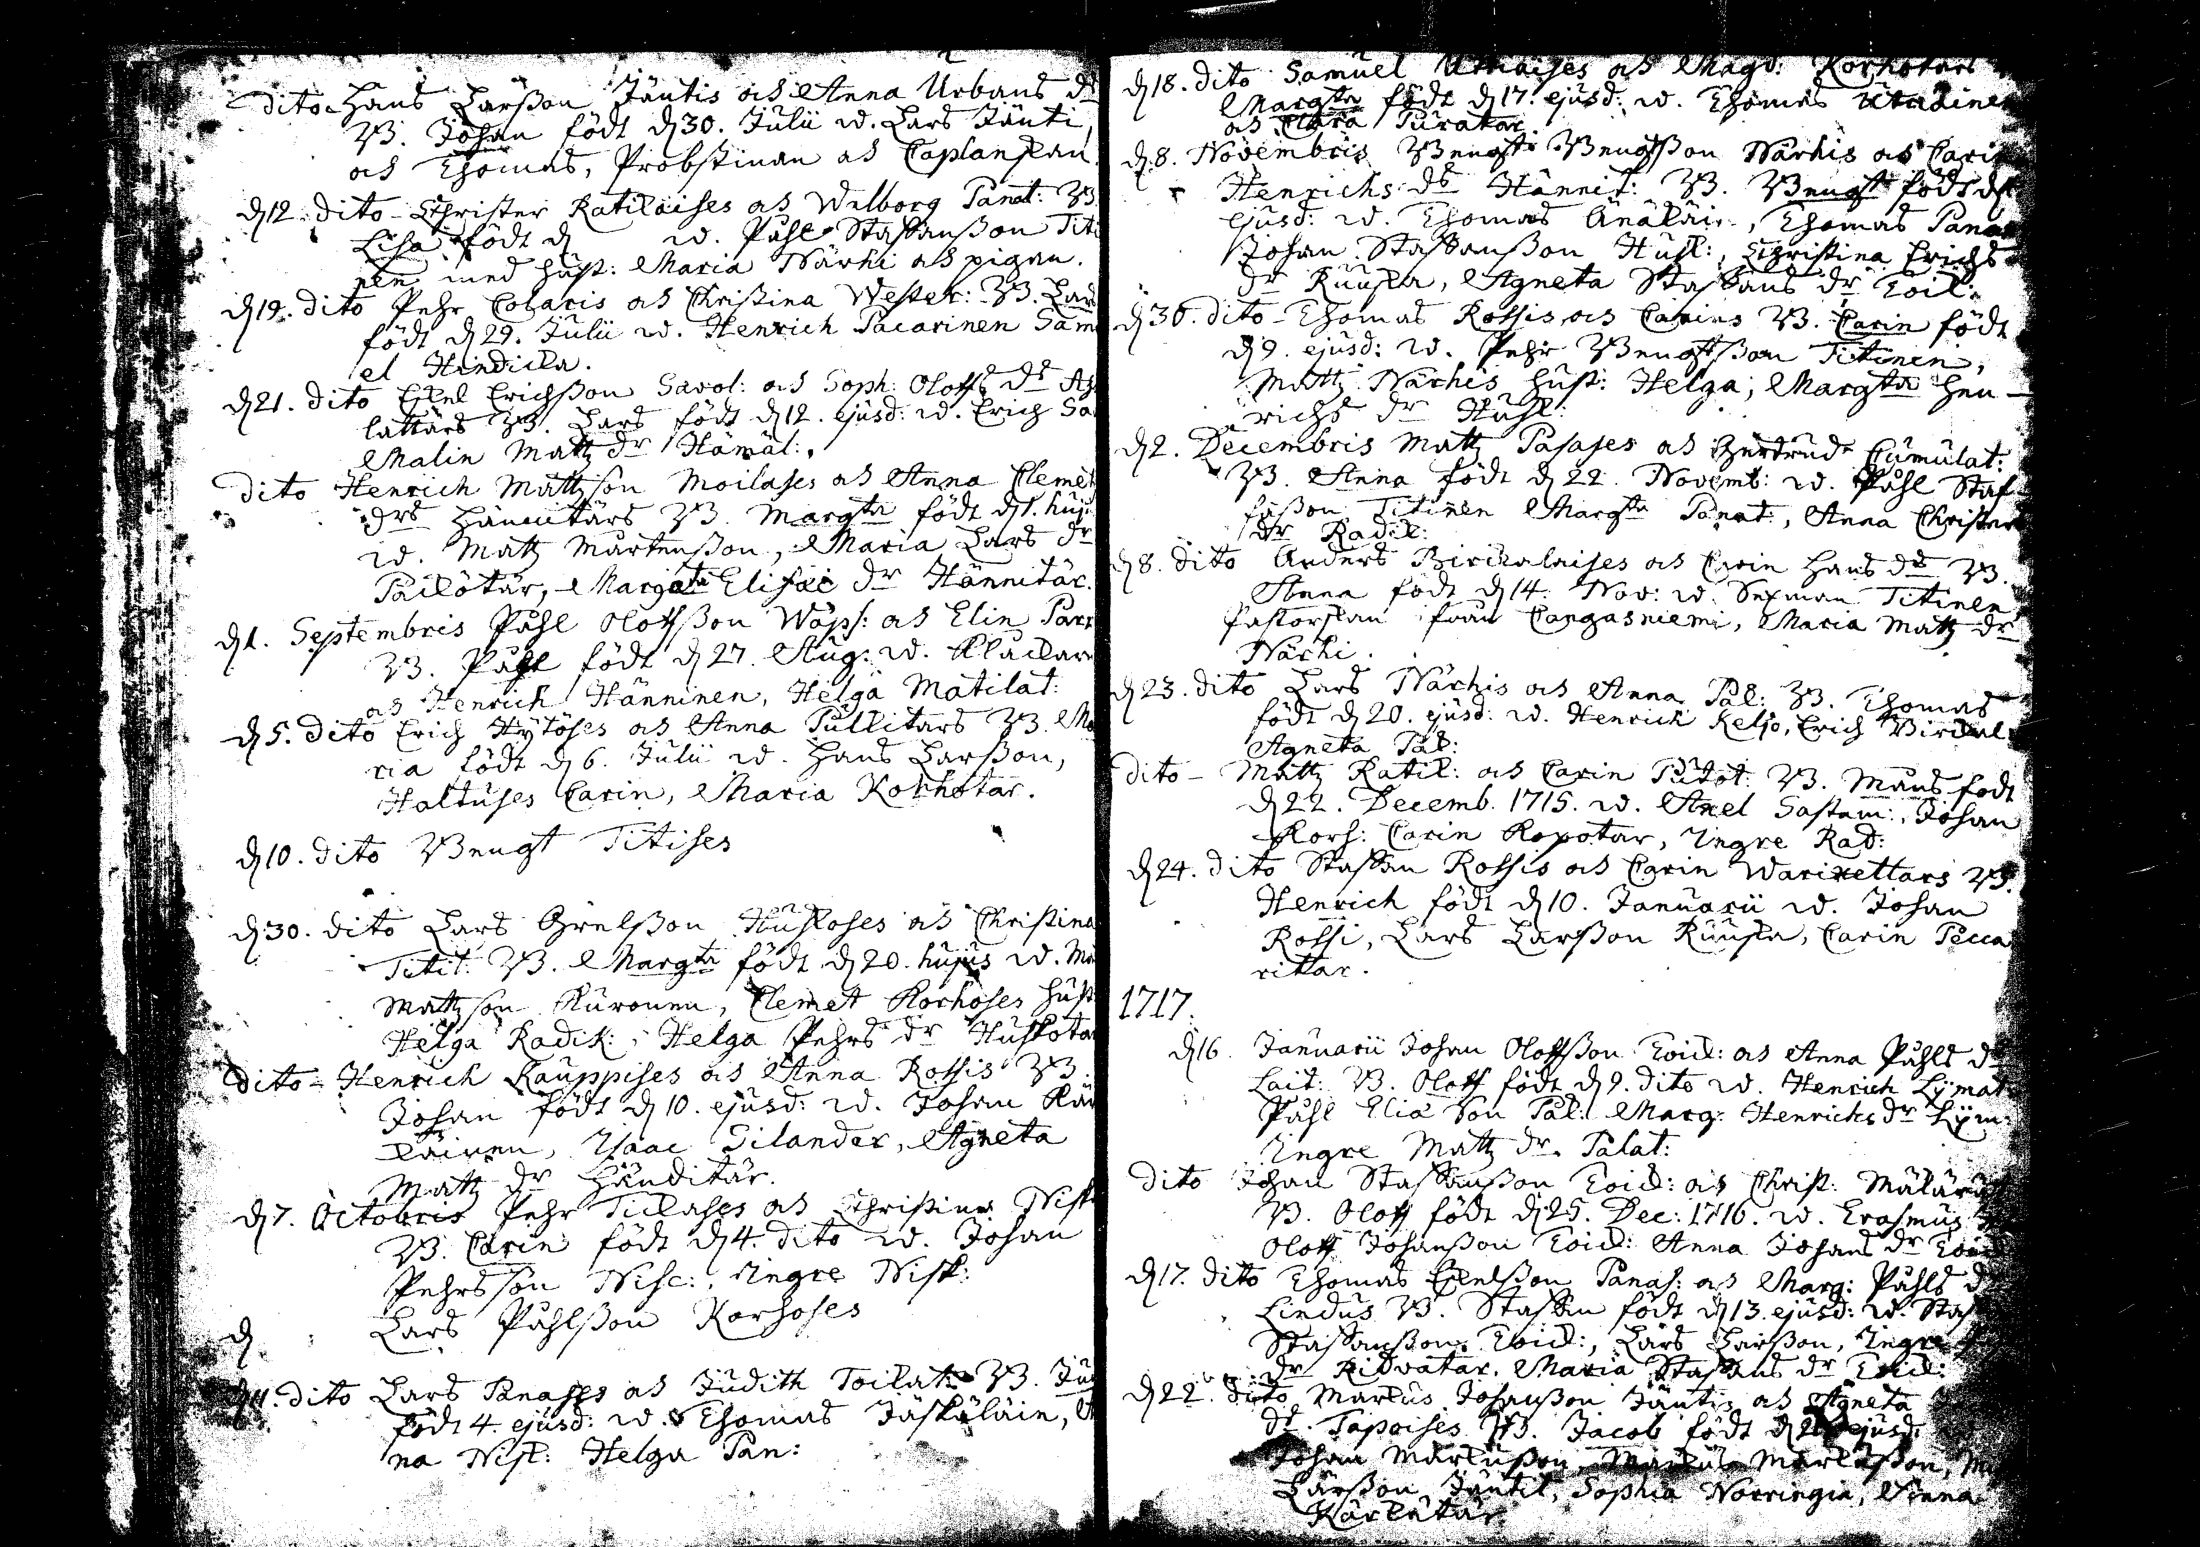 dito Hans Larsson Jäntis och Anna Urbans dr
B. Johan född d 30. Julii w. Lars Jänti,
och Thomas, Probstinnan och Caplanskan.
d 12. dito Christer Ratilaises och Walborg Panat: B.
Lisa född d w. Påhl Staffansson Titi
nen med hust: Maria Närhi och pigan.
d 19. dito Pehr Colaris och Christina Wester: B. Lars
född d 29. Julii w. Henrich Pacarinen Samu
el Hindicka.
d 21. dito Eskel Erichsson Savol: och Soph: Oloffs dr
lattars B. Lars född d 12. ejusd: w. Erich
Malin Mattz dr Hämäl:
dito Henrich Mattzson Moilases och Anna Clemet
drs Hännitärs B. Margta född d 1. huj:
w. Mattz Mårtensson, Maria Lars dr
Pailötär, Margeta Eliscæ dr Hännitär.
d 1. Septembris Påhl Oloffsson Wäps: och Elin
B. Påhl född d 27. Aug: w. Klåckaren
och Henrich Hänninen, Helga Matilat:
d 5. dito Erich Hytöses och Anna Pullitars B. Ma
ria född d 6. Julii w. Hans Larsson,
Haltuses Carin, Maria Korhotar.
d 10. dito Bengt Titises
d 30. dito Lars Grelsson Huskoses och Christina
Titit: B. Margta född d 20. hujus w.
Mattzson Kuronen, Clemet Korhoses hust:
Helga Radik: Helga Pehrs dr Huskotar
dito Henrich Kauppises och Anna Rossis B.
Johan född d 10. ejusd: w. Johan Kär
käinen, Isaac Gilander, Agneta
Mattz dr Händitär.
d 7. Octobris Pehr Ticlases och Christina Nisk
B. Carin född d 4. dito w. Johan
Pehrsson Nisc:, Ingre Nisk:
d Lars Påhlsson Korhoses
d 11. dito Lars Panases och Judith Toilat: B.
född 4. ejusd: w. Thomas Jäskäläin,
na Nisk: Helga Pan:
d 18. dito Samuel och Magd: Korhotars
Margta född d 17. ejusd: w. Thomas
och Clara Puratar.
d 8. Novembris Bengt Bengtsson Närhis och Carin
Henrichs dr Hännit: B. Bengt född d
ejusd: w. Thomas Anäläin, Thomas Panan
Johan Staffansson Husk:, Christina Erichs
dr Ruuska, Agneta Staffans dr Toik:
d 30. dito Thomas Rossis och Carins B. Carin född
d 9. ejusd: w. Pehr Bengtsson Titinen,
Mattz Närhis hust: Helga, Margta Hen-
richs dr Husk:
d 2. Decembris Mattz Pasases och Gertrud Cumulat:
B. Anna född d 22. Novemb: w. Påhl Staf-
fansson Titinen Margta Panat:, Anna Christers
dr Radik:
d 8. dito Anders Birckalaises och Carin Hans drs B.
Anna född d 14. Nov: w. Sexman Titinen,
Pastorskan från Cangasniemi, Maria Mattz dr
Närhi.
d 23. dito Lars Närhis och Anna Pål: B. Thomas
född d 20. ejusd: w. Henrich Kelio, Erich Birckal:
Agneta Pål:
dito Mattz Ratik: och Carin Putot: B. Måns född
d 22. Decemb. 1715. w. Axel Sastam:, Johan
Korh: Carin Ropotar, Ingre Rad:
d 24. dito Staffan Rossis och Carin Warixettars B.
Henrich född d 10. Januarii w. Johan
Rossi, Lars Larsson Ruuska, Carin Pecca
rittar.
1717.
d 16. Januarii Johan Oloffsson Toik: och Anna Påhls dr
Lait: B. Oloff född d 9. dito w. Henrich Lymat
Påhl Eliæ son Pål: Marg: Henrichs dr Lym:
Ingre Mattz dr Palat:
dito Johan Staffansson Toik: och Christ: Mälär
B. Oloff född d 25. Dec: 1716. w. Erasmus
Oloff Johansson Toik: Anna Johans dr Toik
d 17. dito Thomas Eskelsson Panas: och Marg: Påhls dr
Lindus B. Staffan född d 13. ejusd: w. Staf
Staffansson Toik:, Lars Larsson, Ingre
dr Ridvatar. Maria Staffans dr Toik:
d 22. dito Markus Johansson Jäntis och Agneta
dr Tapoises B. Jacob född d ejusd:
Johan Markusson, Markus Markusson,
Larsson Jäntil, Sophia Norringia, Anna
Karkutar